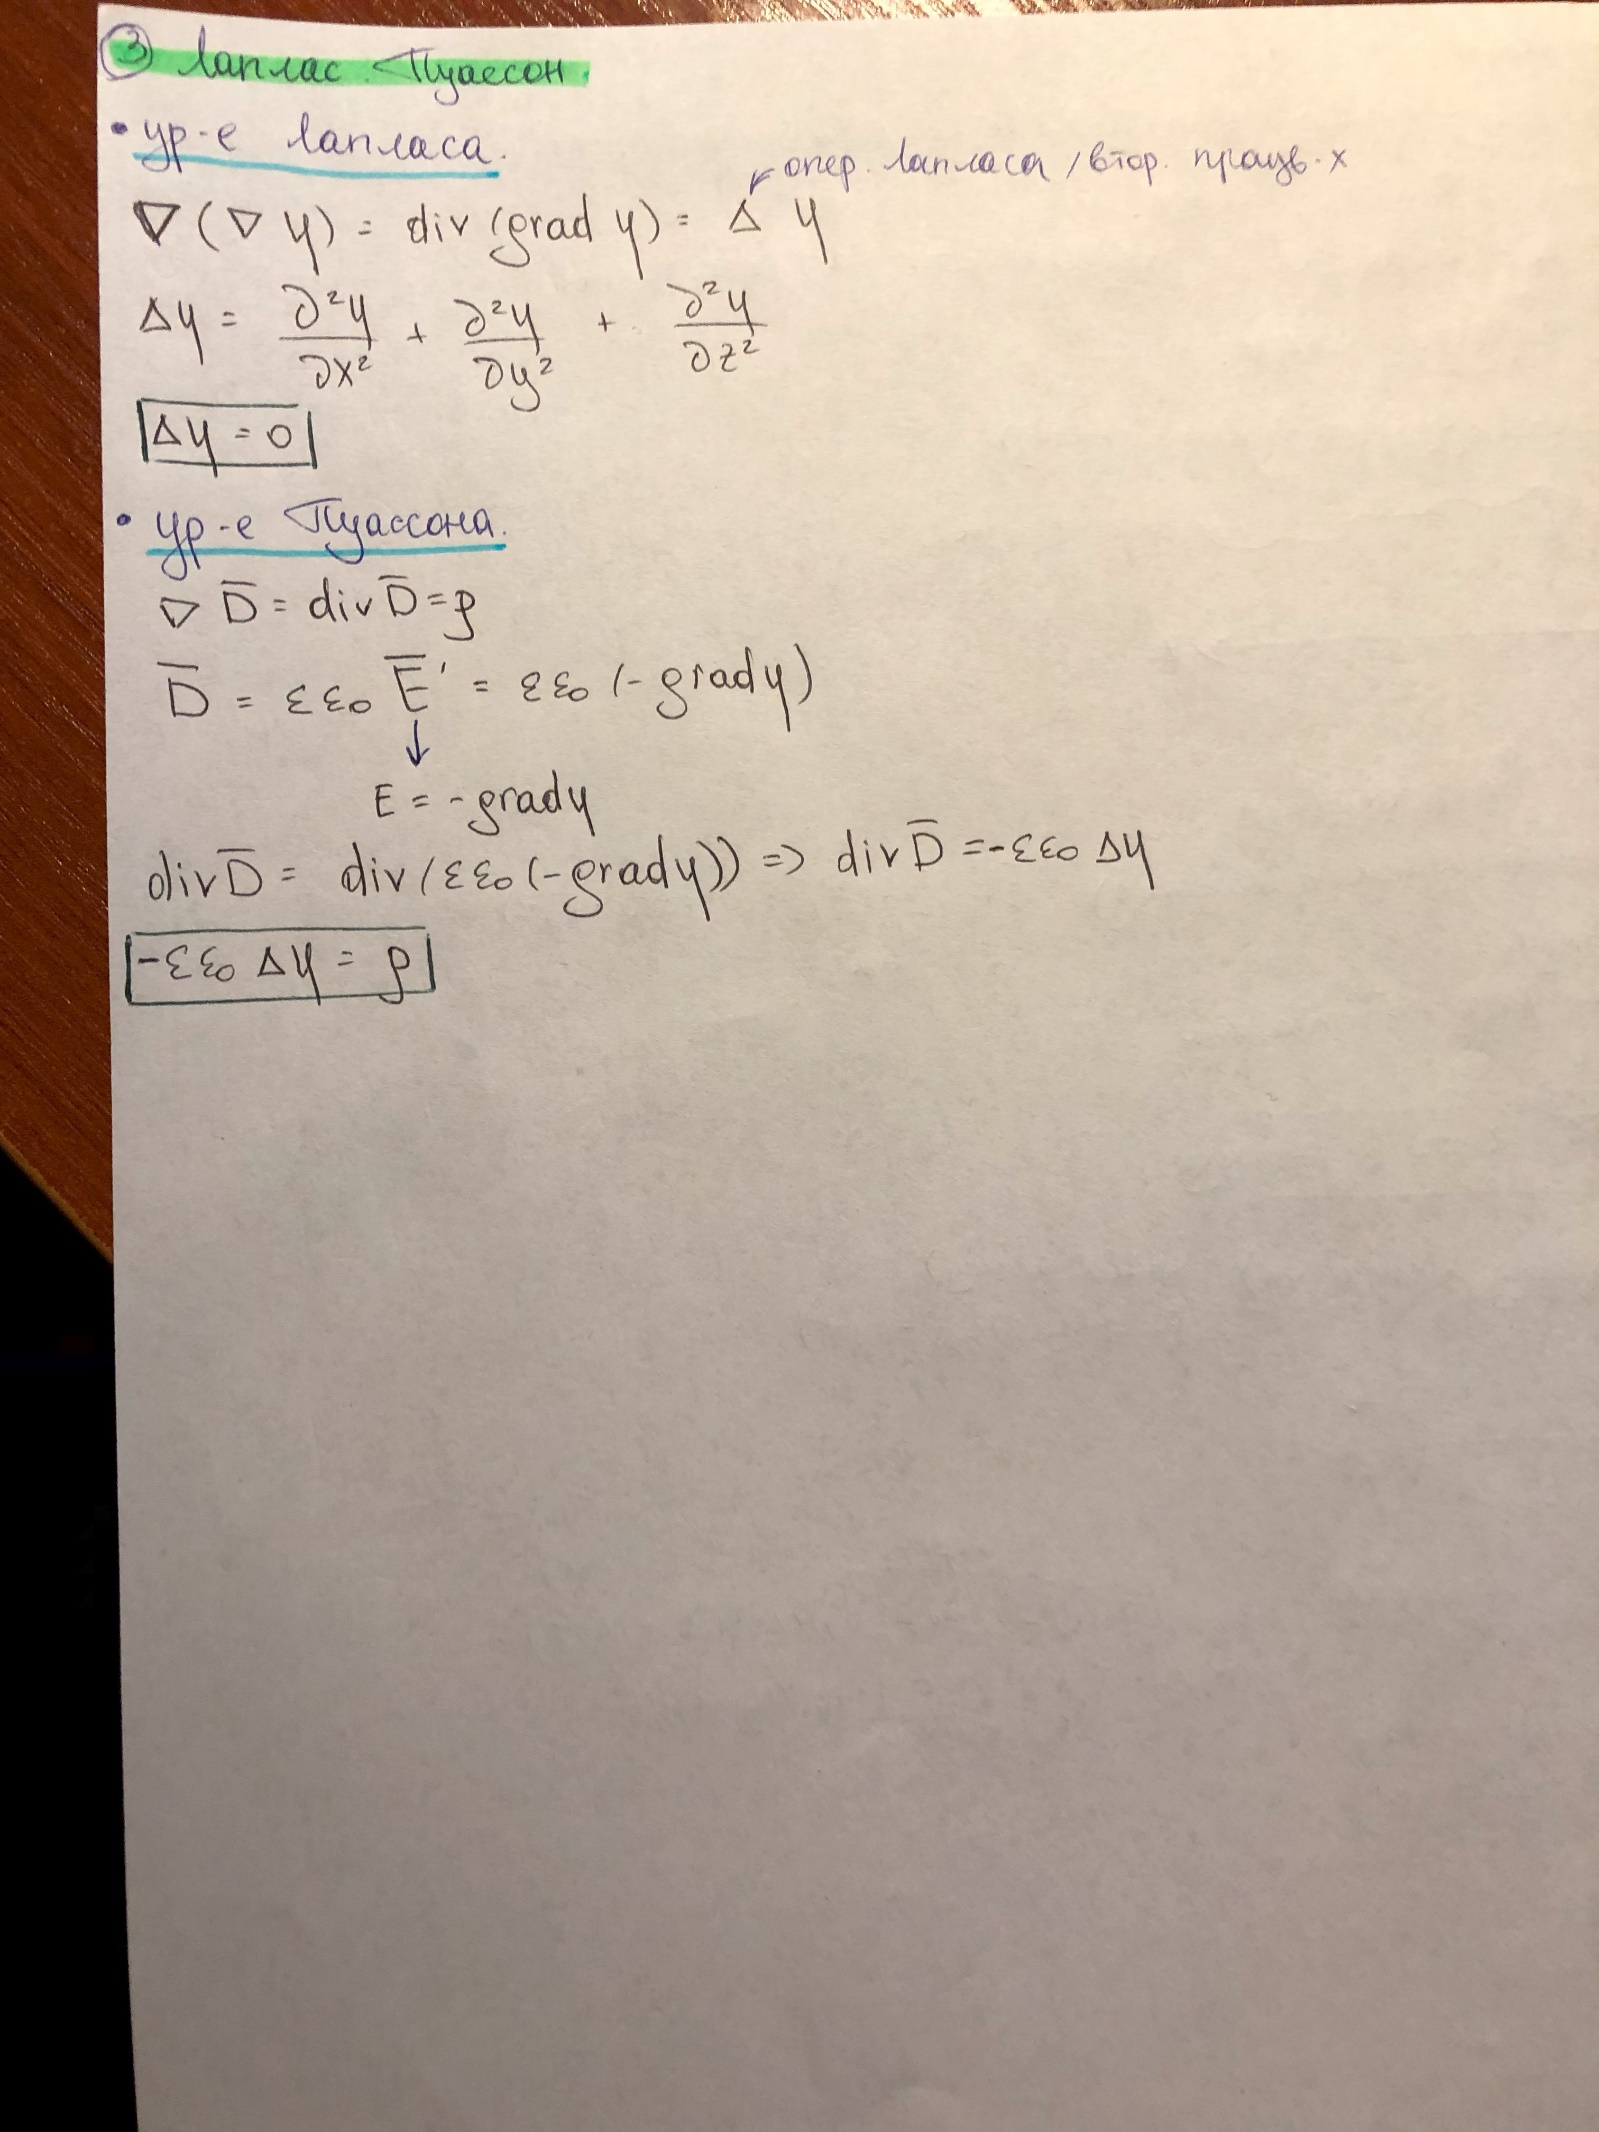 ③ Лаплас. Пуассон.
• ур-е Лапласа.
опер. Лапласа / втор. произв-х
∇(∇φ) = div(grad φ) = Δ φ
Δφ = ∂²φ/∂x² + ∂²φ/∂y² + ∂²φ/∂z²
Δφ = 0
• ур-е Пуассона.
∇ D̅ = div D̅ = ρ
D̅ = εε₀ E̅' = εε₀ (-grad φ)
↓
E = -grad φ
div D̅ = div(εε₀(-grad φ)) => div D̅ = -εε₀ Δφ
-εε₀ Δφ = ρ